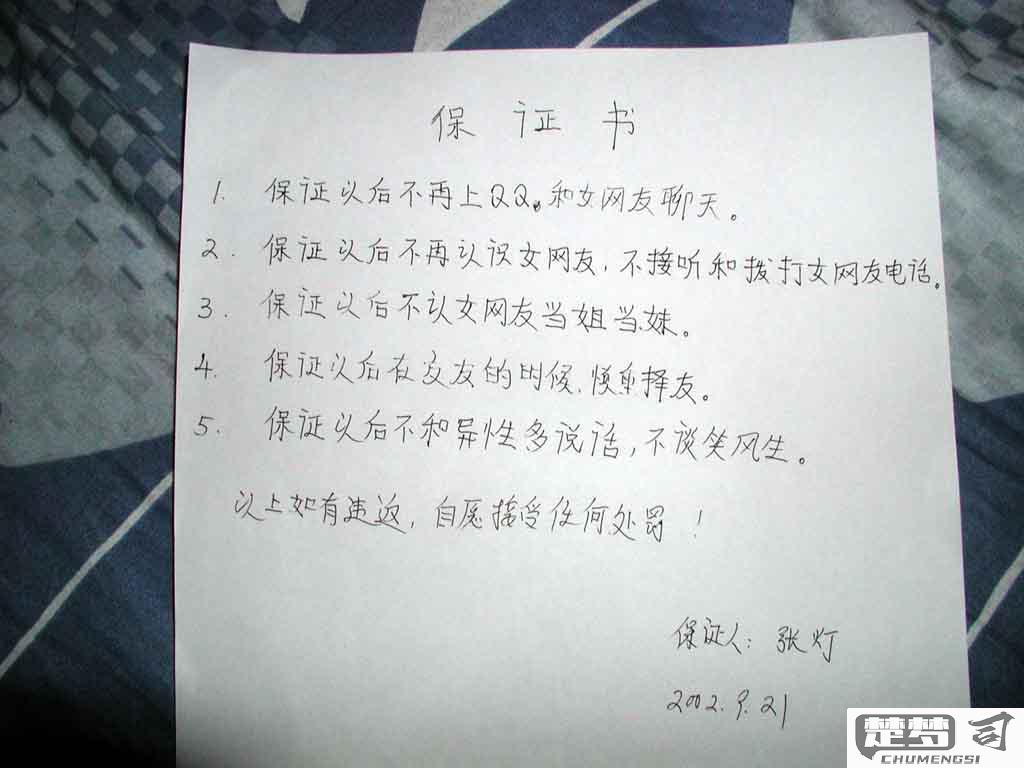 保证书
1. 保证以后不再上QQ。和女网友聊天。
2. 保证以后不再认识女网友，不接听和拨打女网友电话。
3. 保证以后不认女网友当姐当妹。
4. 保证以后在交友的时候，慎重择友。
5. 保证以后不和异性多说话，不谈笑风生。
以上如有违返，自愿接受任何处罚！
保证人：张灯
2002.9.21
楚梦司
CHUMENGSI